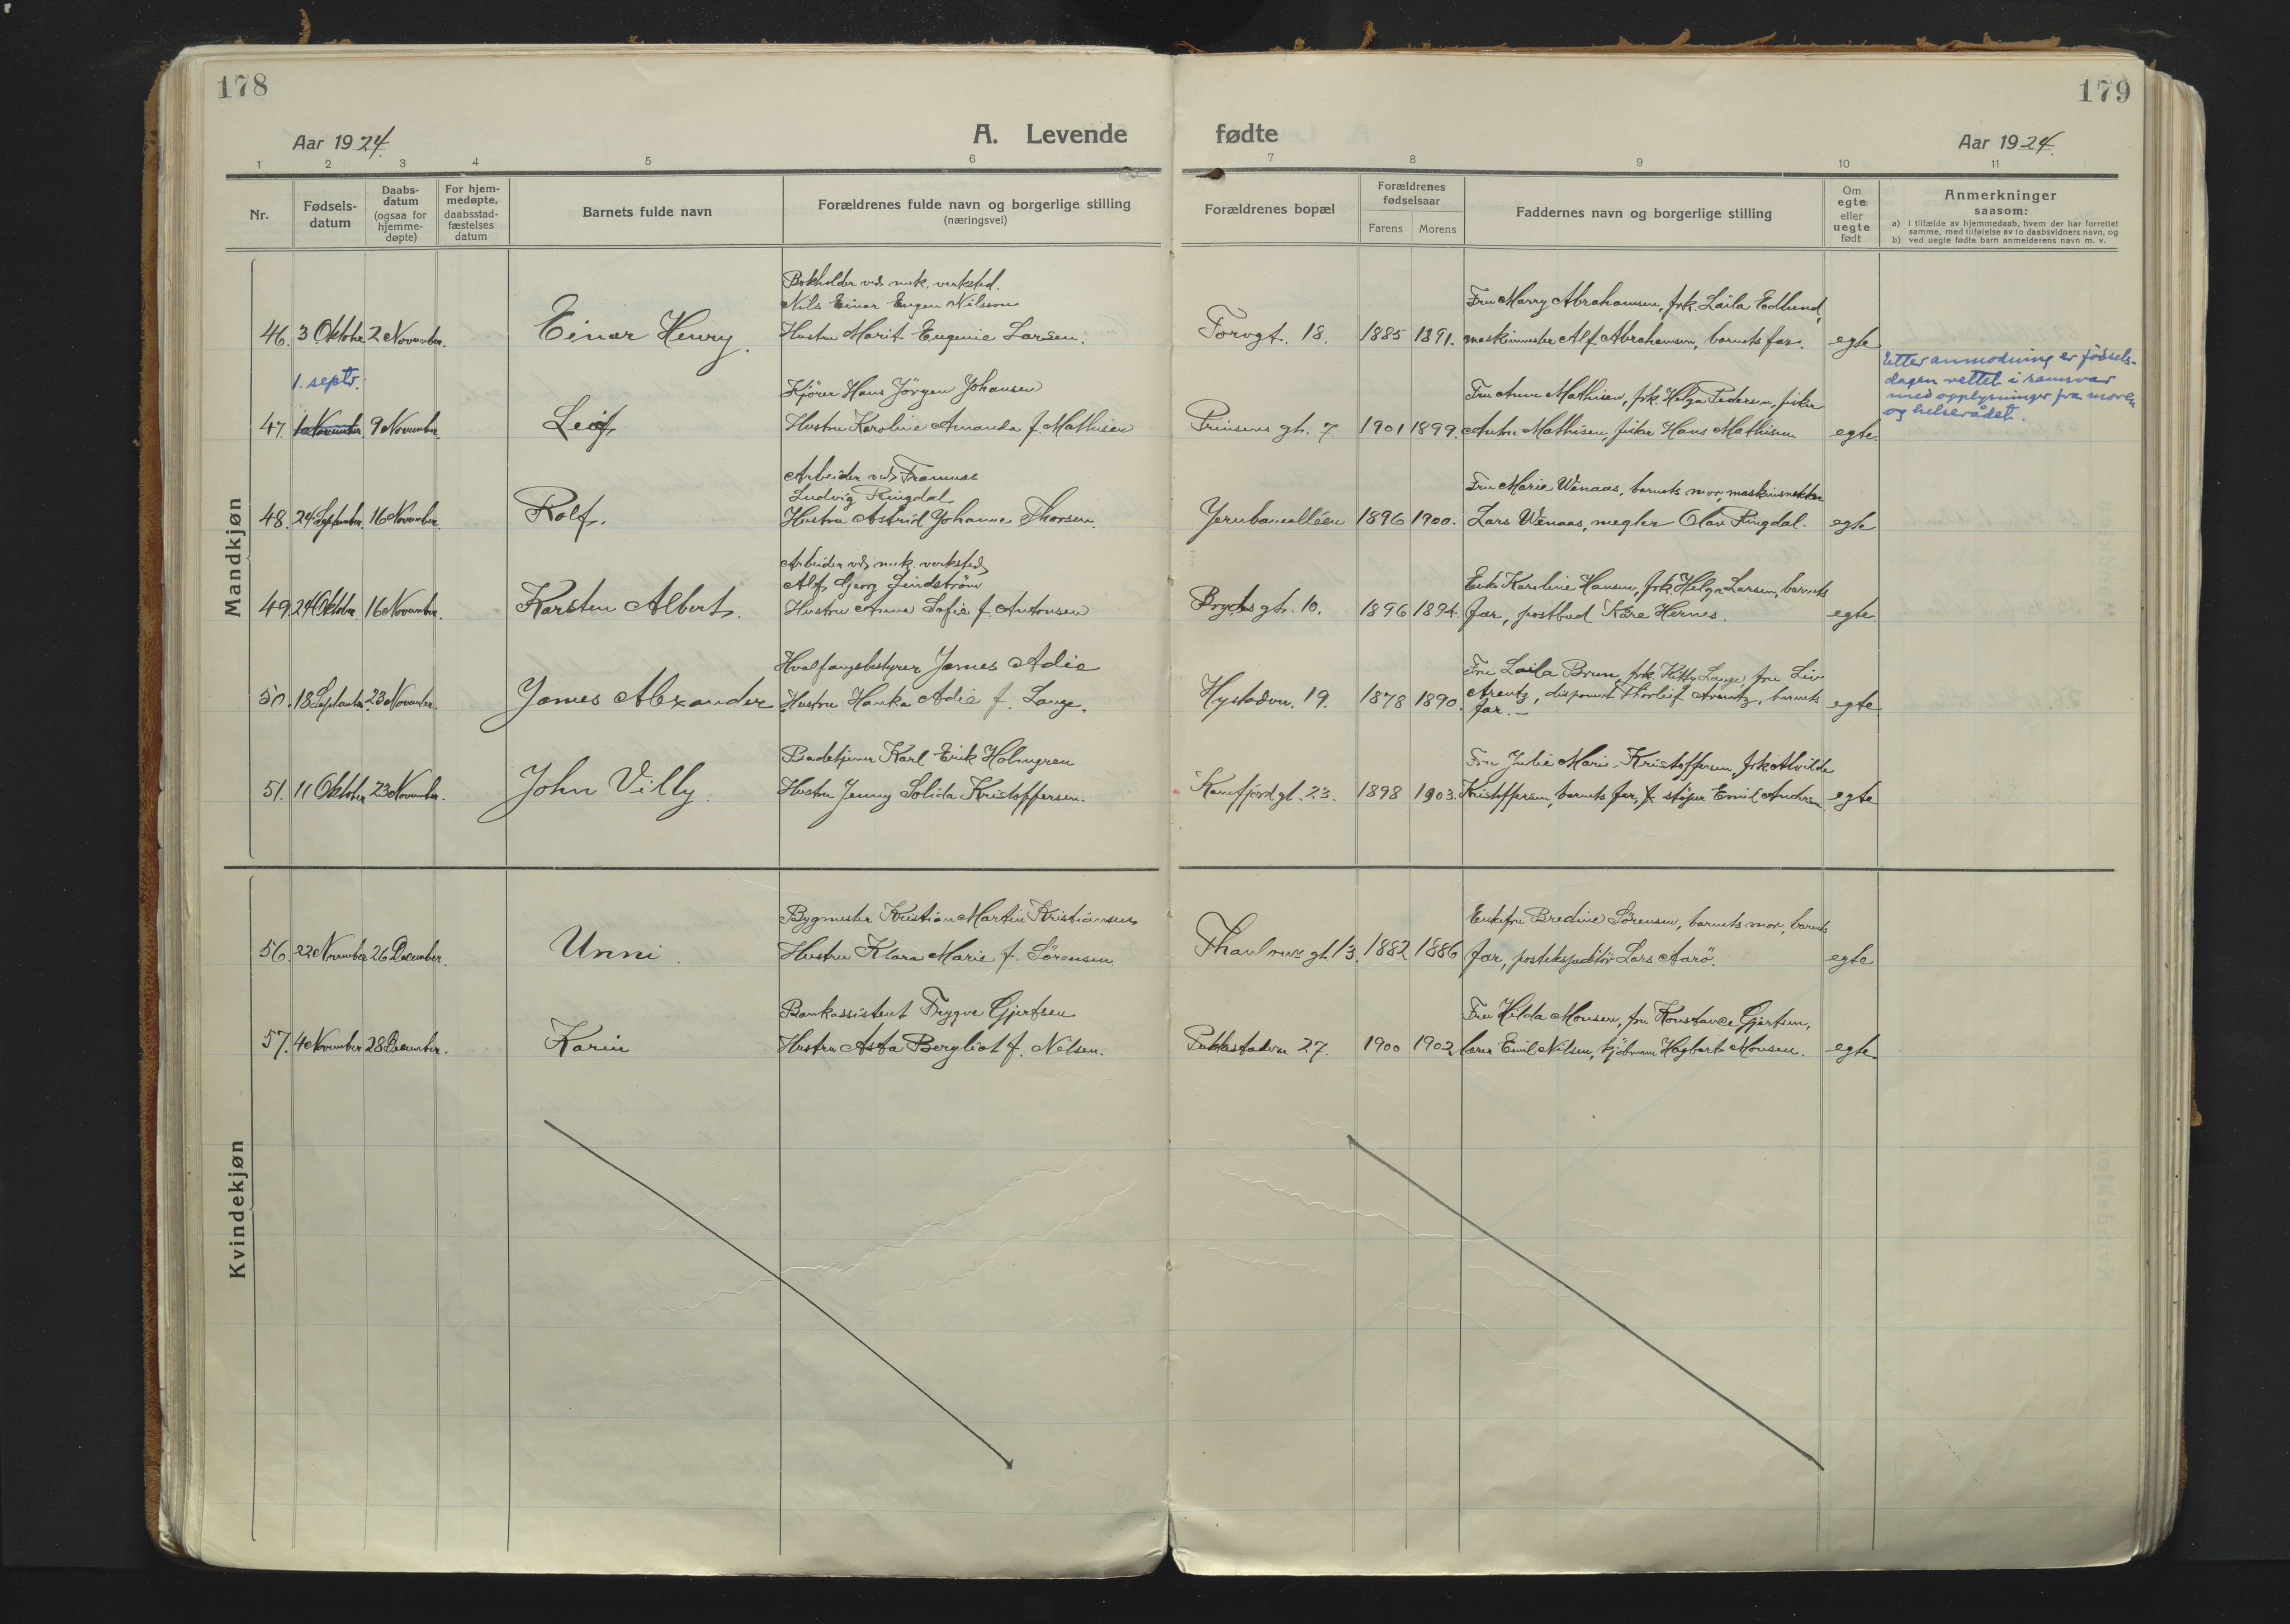 178
Aar 1924.
A. Levende
1 2 3 4 5 6
Nr.
Fødsels-
datum
Daabs-
datum
(ogsaa for
hjemme-
døpte)
For hjem-
medøpte,
daabsstad-
fæstelses
datum
Barnets fulde navn
Forældrenes fulde navn og borgerlige stilling
(næringsvei)
Mandkjøn
Bokholder ved mek. verksted.
Nils Einar Eugen Nilsson
46. 3 Oktober 2 November. Einar Henry. Hustru Marit Eugenie Larsen.
1. septr.
Kjører Hans Jörgen Johansen
47. 1 November 9 November. Leif Hustru Karoline Amanda f. Mathisen
Arbeider ved Framnæs
Ludvig Ringdal
48. 24 September 16 November. Rolf. Hustru Astrid Johanne Thorsen.
Arbeider ved mek. verksted
Alf Georg Lindström
49. 24 Oktober 16 November. Karsten Albert. Hustru Anna Sofie f. Antonsen
Hvalfangstbestyrer James Adie
50. 18 September 23 November. James Alexander Hustru Hanka Adie f. Lange.
Badetjener Karl Erik Holmgren
51. 11 Oktober 23 November. John Villy. Hustru Jenny Solida Kristoffersen.
Kvindekjøn
Bygmester Kristian Martin Kristiansen
56. 22 November 26 December. Unni. Hustru Klara Marie f. Sörensen
Bankassistent Trygve Gjertsen
57. 4 November 28 December. Karin Hustru Asta Bergliot f. Nelsen.
179
fødte
Aar 1924.
7 8 9 10 11
Forældrenes bopæl
Forældrenes
fødselsaar
Farens Morens
Faddernes navn og borgerlige stilling
Om
egte
eller
uegte
født
Anmerkninger
saasom:
a) i tilfælde av hjemmedaab, hvem der har forrettet
samme, med tilføielse av to daabsvidners navn, og
b) ved uegte fødte barn anmelderens navn m. v.
Fru Marry Abrahamsen, frk. Laila Edlund,
Torvgt. 18. 1885 1891. maskinmester Alf Abrahamsen, barnets far. egte
Etter anmodning er födsels-
dagen rettet i samsvar
med opplysninger fra moren
og helserådet.
Fru Anna Mathisen, frk. Helga Pedersen, fisker
Prinsens gt. 7. 1901 1899. Anton Mathisen, fisker Hans Mathisen egte
Fru Marie Wenaas, barnets mor, maskinmester
Jernbanealléen 1896 1900. Lars Wenaas, megler Olav Ringdal. egte
Enke Karoline Hansen, frk. Helga Larsen, barnets
Brydes gt. 10. 1896 1894. far, postbud Kåre Hernes. egte
Fru Laila Brun, frk. Kitty Lange, fru Liv
Hystadvn. 19. 1878 1890. Arentz, disponent Thorleif Arentz, barnets egte
far.
Fru Julie Marie Kristoffersen, frk Alvilde
Kamfjordgt. 23. 1898 1903. Kristoffersen, barnets far, støper Emil Andersen egte
Enkefru Bredine Sörensen, barnets mor, barnets
Thaulows gt. 13. 1882 1886 far, postekspeditör Lars Aarö. egte
Fru Hilda Monsen, fru Konstance Gjertsen,
Pukkestadvn 27. 1900 1902 lærer Emil Nilsen, kjöbmann Hagbart Monsen. egte